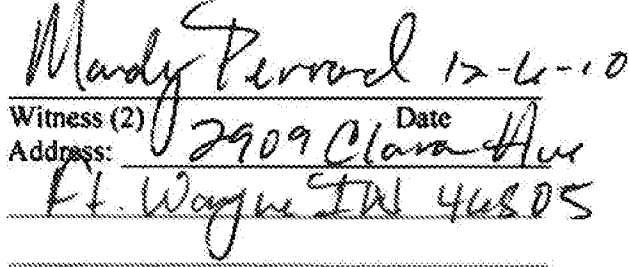 Mandy Perrad 12-6-10
Witness (2) Date
Address: 2909 Clara Ave
Ft. Wayne IN 46805